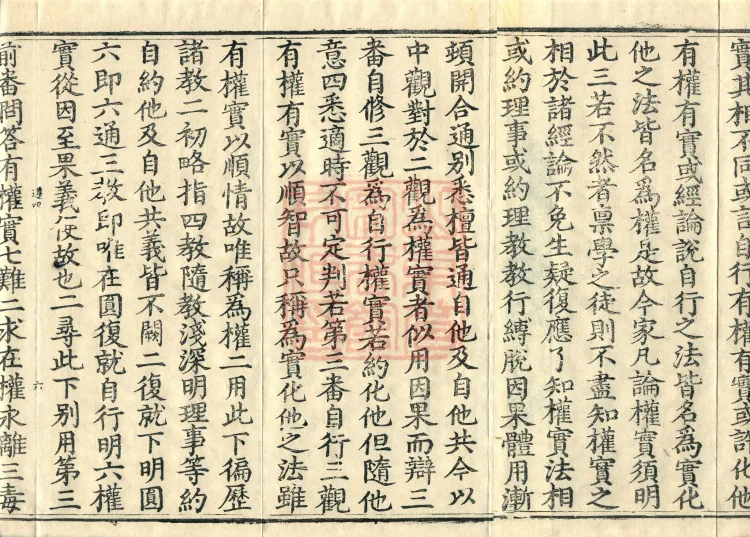 實其相不同或言自行有權有實或許化他
有權有實或經論說自行之法皆名為實化
他之法皆名為權是故今家凡論權實須明
此三若不然者稟學之徒則不盡知權實之
相於諸經論不免生疑復應了知權實法相
或約理事或約理教教行縛脫因果體用漸
頓開合通別悉檀皆通自他及自他共今以
中觀對於二觀為權實者似用因果而辯三
番自修三觀為自行權實若約化他但隨他
意四悉適時不可定判若第三番自行三觀
有權有實以順智故只稱為實化他之法雖
有權實以順情故唯稱為權二用此下徧歷
諸教二初略指四教隨教淺深明理事等約
自約他及自他共義皆不闕二復就下明圓
六即六通三教即唯在圓復就自行明六權
實從因至果義便故也二尋此下別用第三
六
前番問答有權實七難二求在權永離三毒